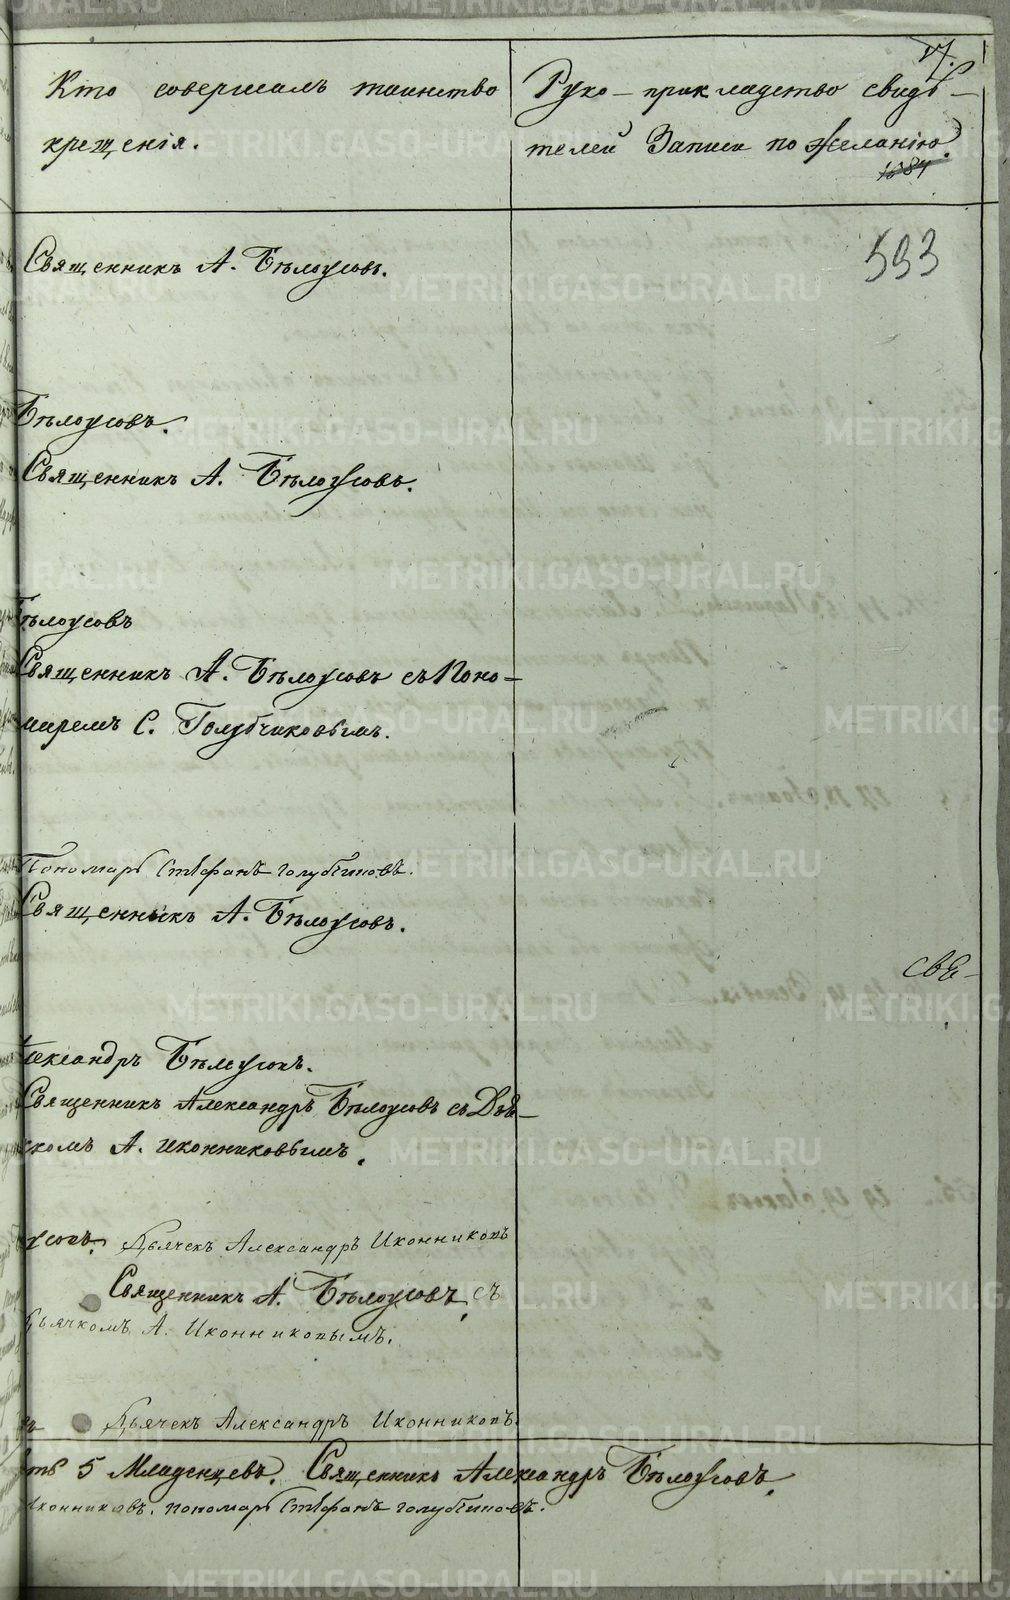 17.
Кто совершалъ таинство
крещенія.
Руко-прикладство свидѣ-
телей записи по желанію.
1084
593
Священникъ А. Бѣлоусовъ.
Бѣлоусовъ.
Священникъ А. Бѣлоусовъ.
Бѣлоусовъ
Священникъ А. Бѣлоусовъ съ Поно-
маремъ С. Голубчиковымъ.
Пономарь Стефанъ Голубчиковъ.
Священникъ А. Бѣлоусовъ.
свѣ-
лександръ Бѣлоусовъ.
Священникъ Александръ Бѣлоусовъ съ Дья-
чкомъ А. Иконниковымъ.
усовъ. Дьячекъ Александръ Иконниковъ
Священникъ А. Бѣлоусовъ, съ
Дьячкомъ А. Иконниковымъ.
въ Дьячекъ Александръ Иконниковъ.
ть 5 Младенцевъ. Священникъ Александръ Бѣлоусовъ.
Иконниковъ. пономарь Стефанъ Голубчиковъ.
METRIKI.GASO-URAL.RU